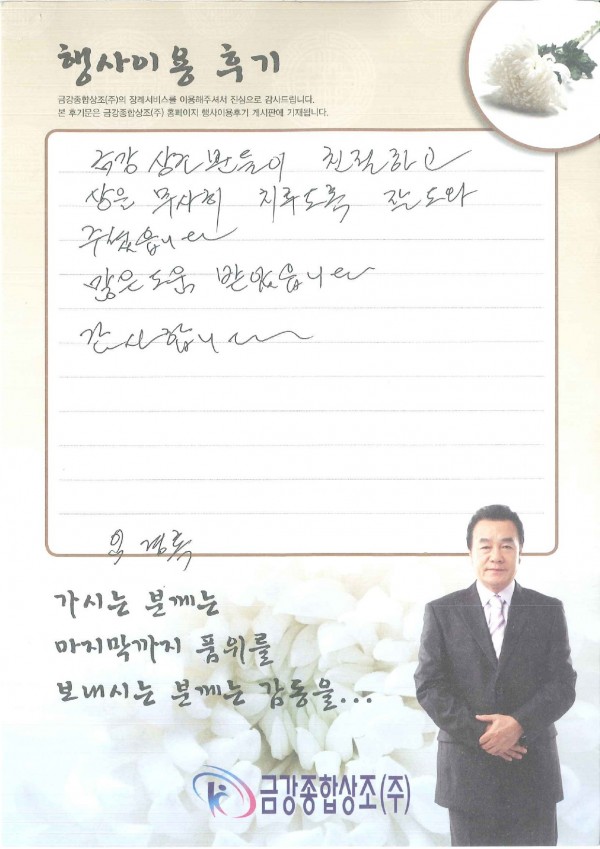 행사이용 후기
금강종합상조(주)의 장례서비스를 이용해주셔서 진심으로 감사드립니다.
본 후기문은 금강종합상조(주) 홈페이지 행사이용후기 게시판에 기재됩니다.
금강 상조 분들이 친절하고
상을 무사히 치루도록 잘 도와
주셨읍니다
많은 도움 받았읍니다
감사합니다
가시는 분께는
마지막까지 품위를
보내시는 분께는 감동을...
금강종합상조(주)